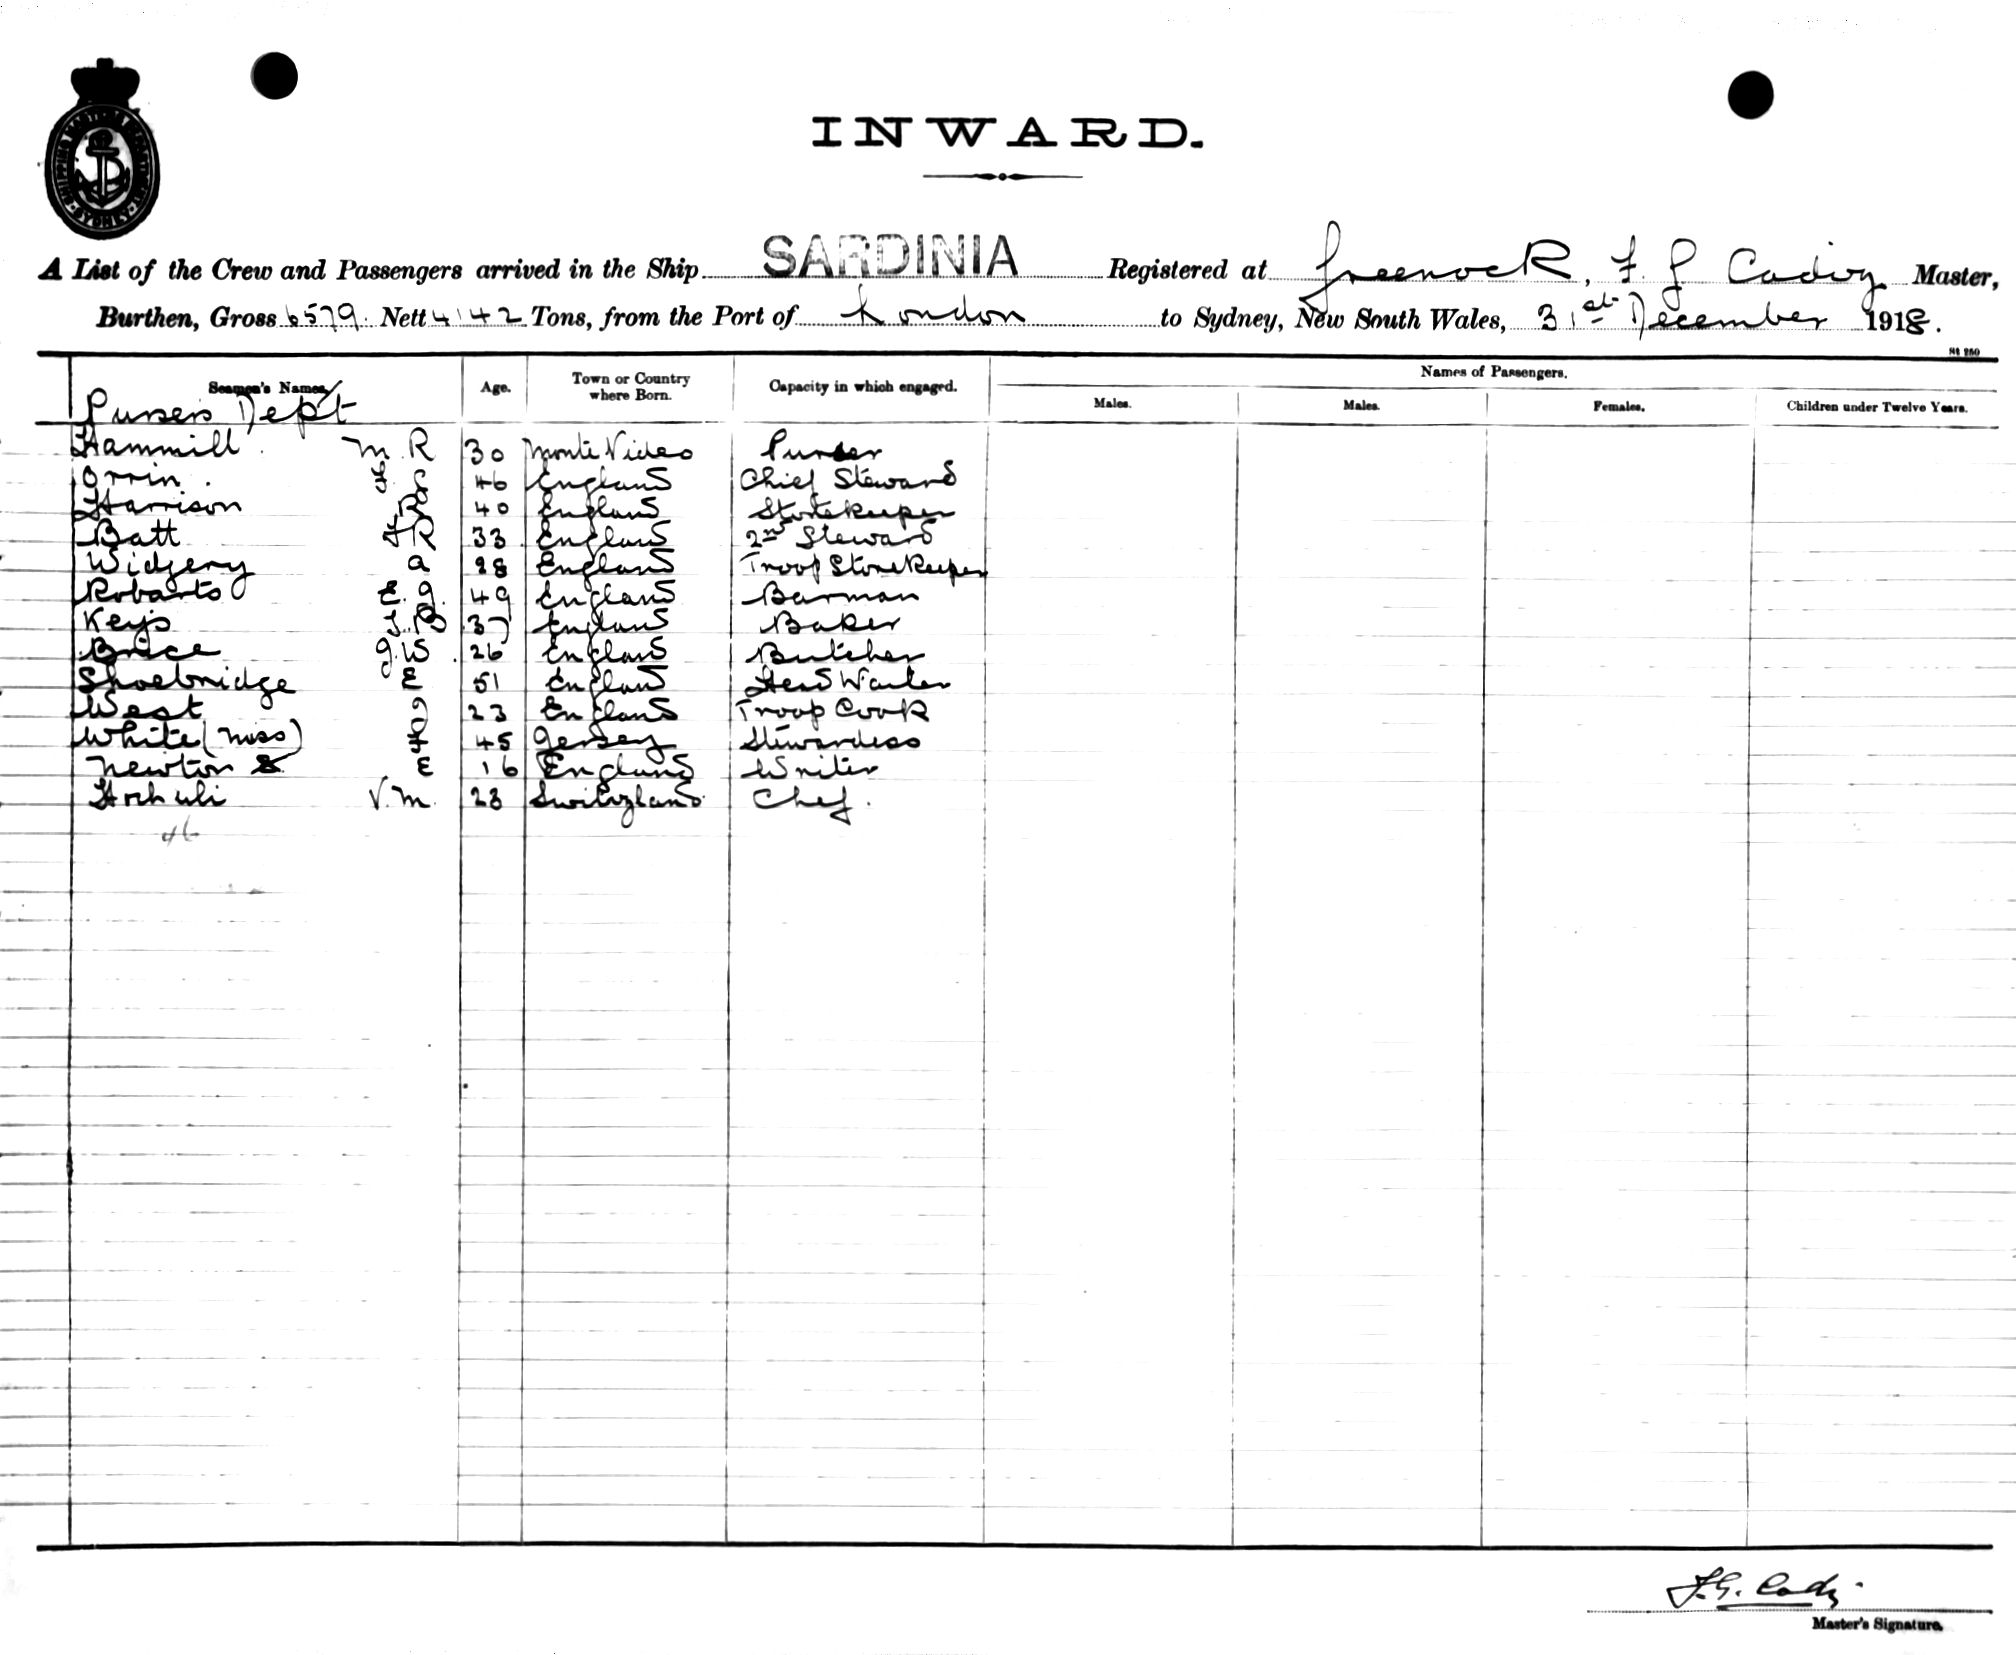 INWARD.
A List of the Crew and Passengers arrived in the Ship SARDINIA Registered at Greenock, F G Cadiz Master,
Burthen, Gross 6579 Nett 4142 Tons, from the Port of London to Sydney, New South Wales, 31st December 1918.
Seamen's Names Age. Town or Country where Born. Capacity in which engaged. Names of Passengers.
Males. Males. Females. Children under Twelve Years.
Pursers Dept
Hammill M. R 30 Monte Video Purser
Orrin. 46 England Chief Steward
Harrison 40 England Storekeeper
Batt F R 33 England 2nd Steward
Widgery A 28 England Troop Storekeeper
Robarts E. G. 49 England Barman
Keys 37 England Baker
Brice G. W. 26 England Butcher
Shoebridge E 51 England Head Waiter
West 23 England Troop Cook
White (Miss) F 45 Jersey Stewardess
Newton E 16 England Writer
Hochuli V. M. 23 Switzland Chef.
46
F. G. Cadiz
Master's Signature.